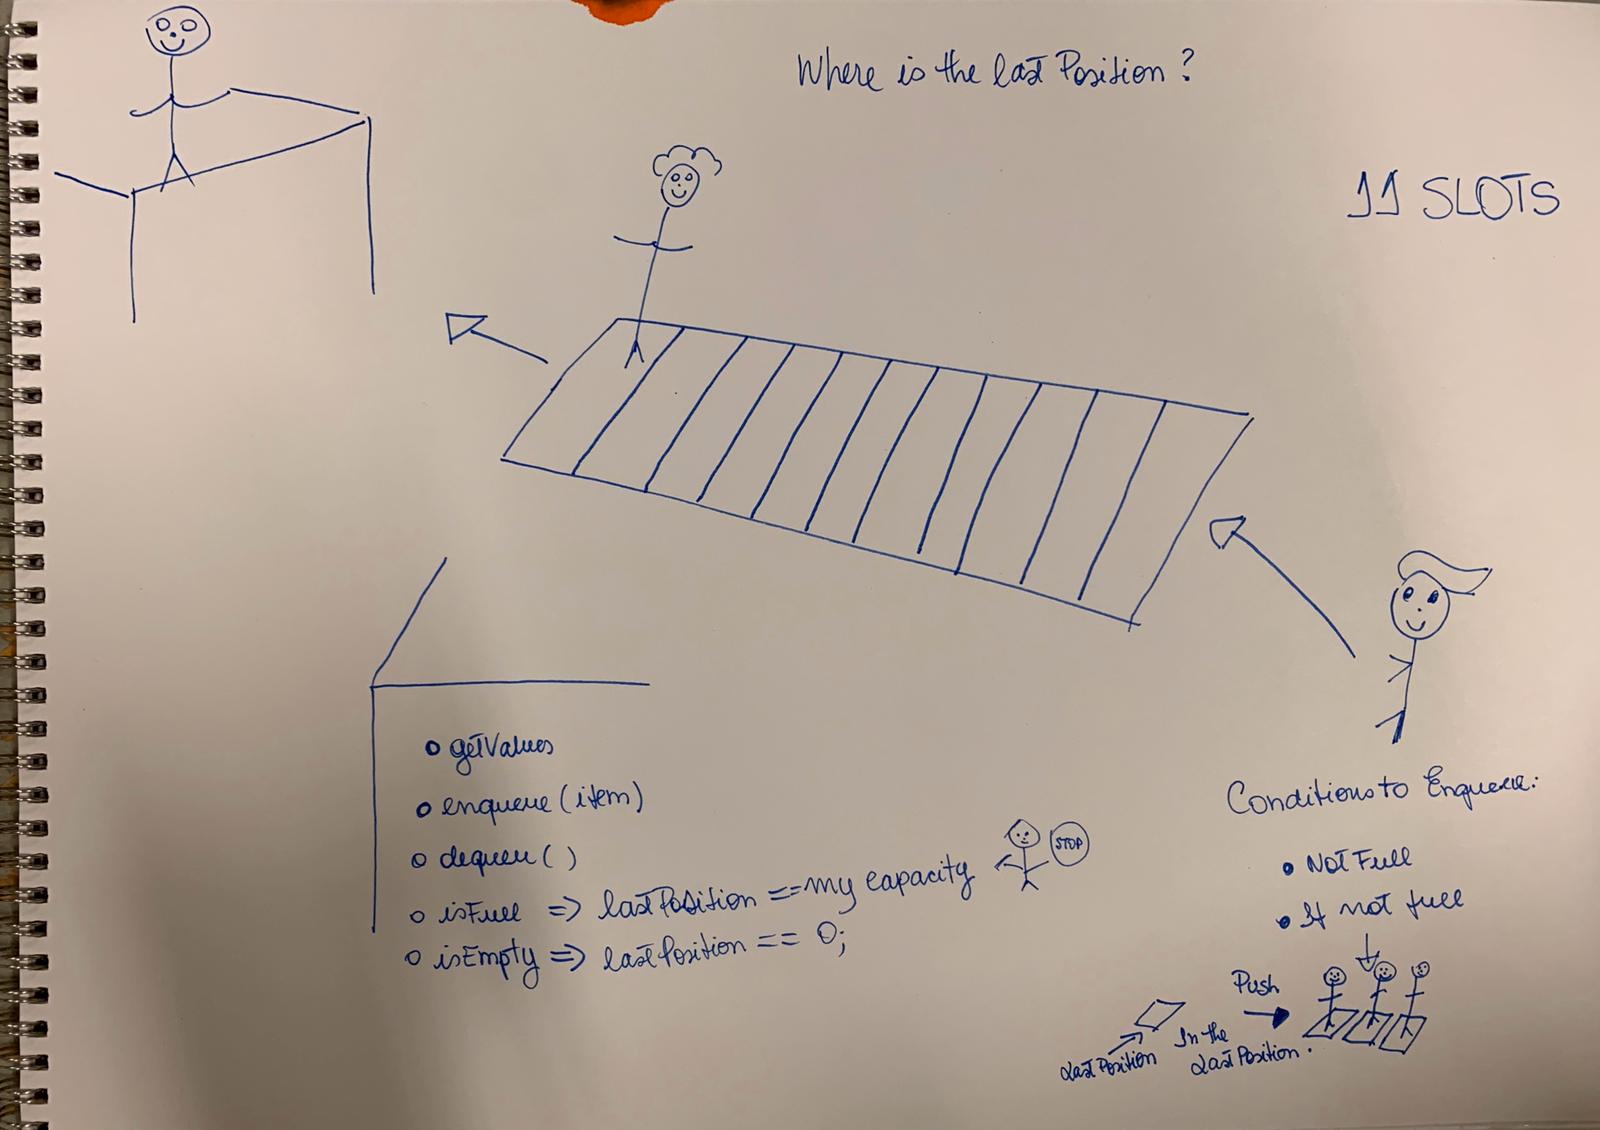 Where is the last Position?
11 SLOTS
getValues
enqueue (item)
dequeu ( )
isFull => lastPosition == my capacity
STOP
isEmpty => lastPosition == 0;
Conditions to Enqueue:
Not Full
If not full
Push
In the
Last Position.
Last Position